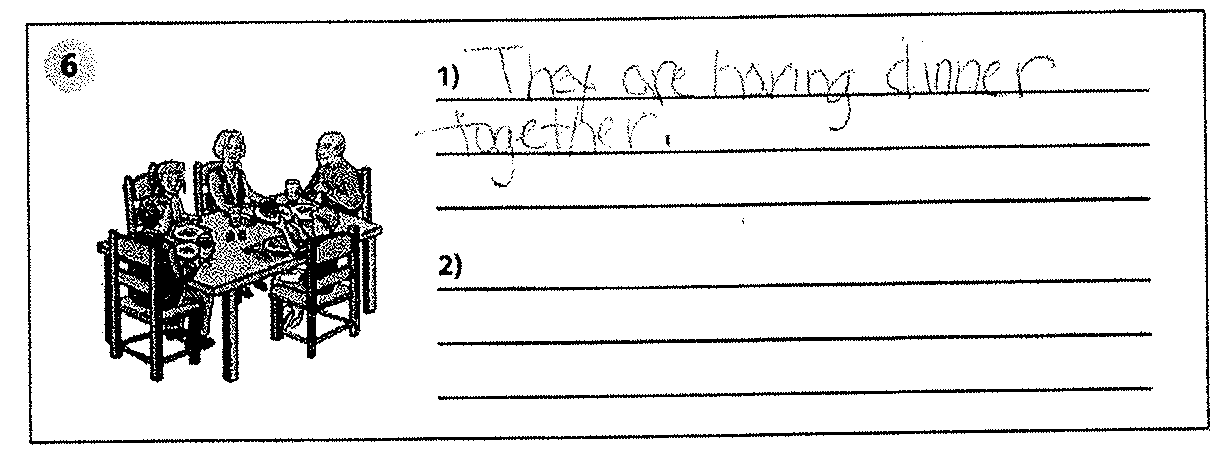 6
1) They are having dinner
together.
2)